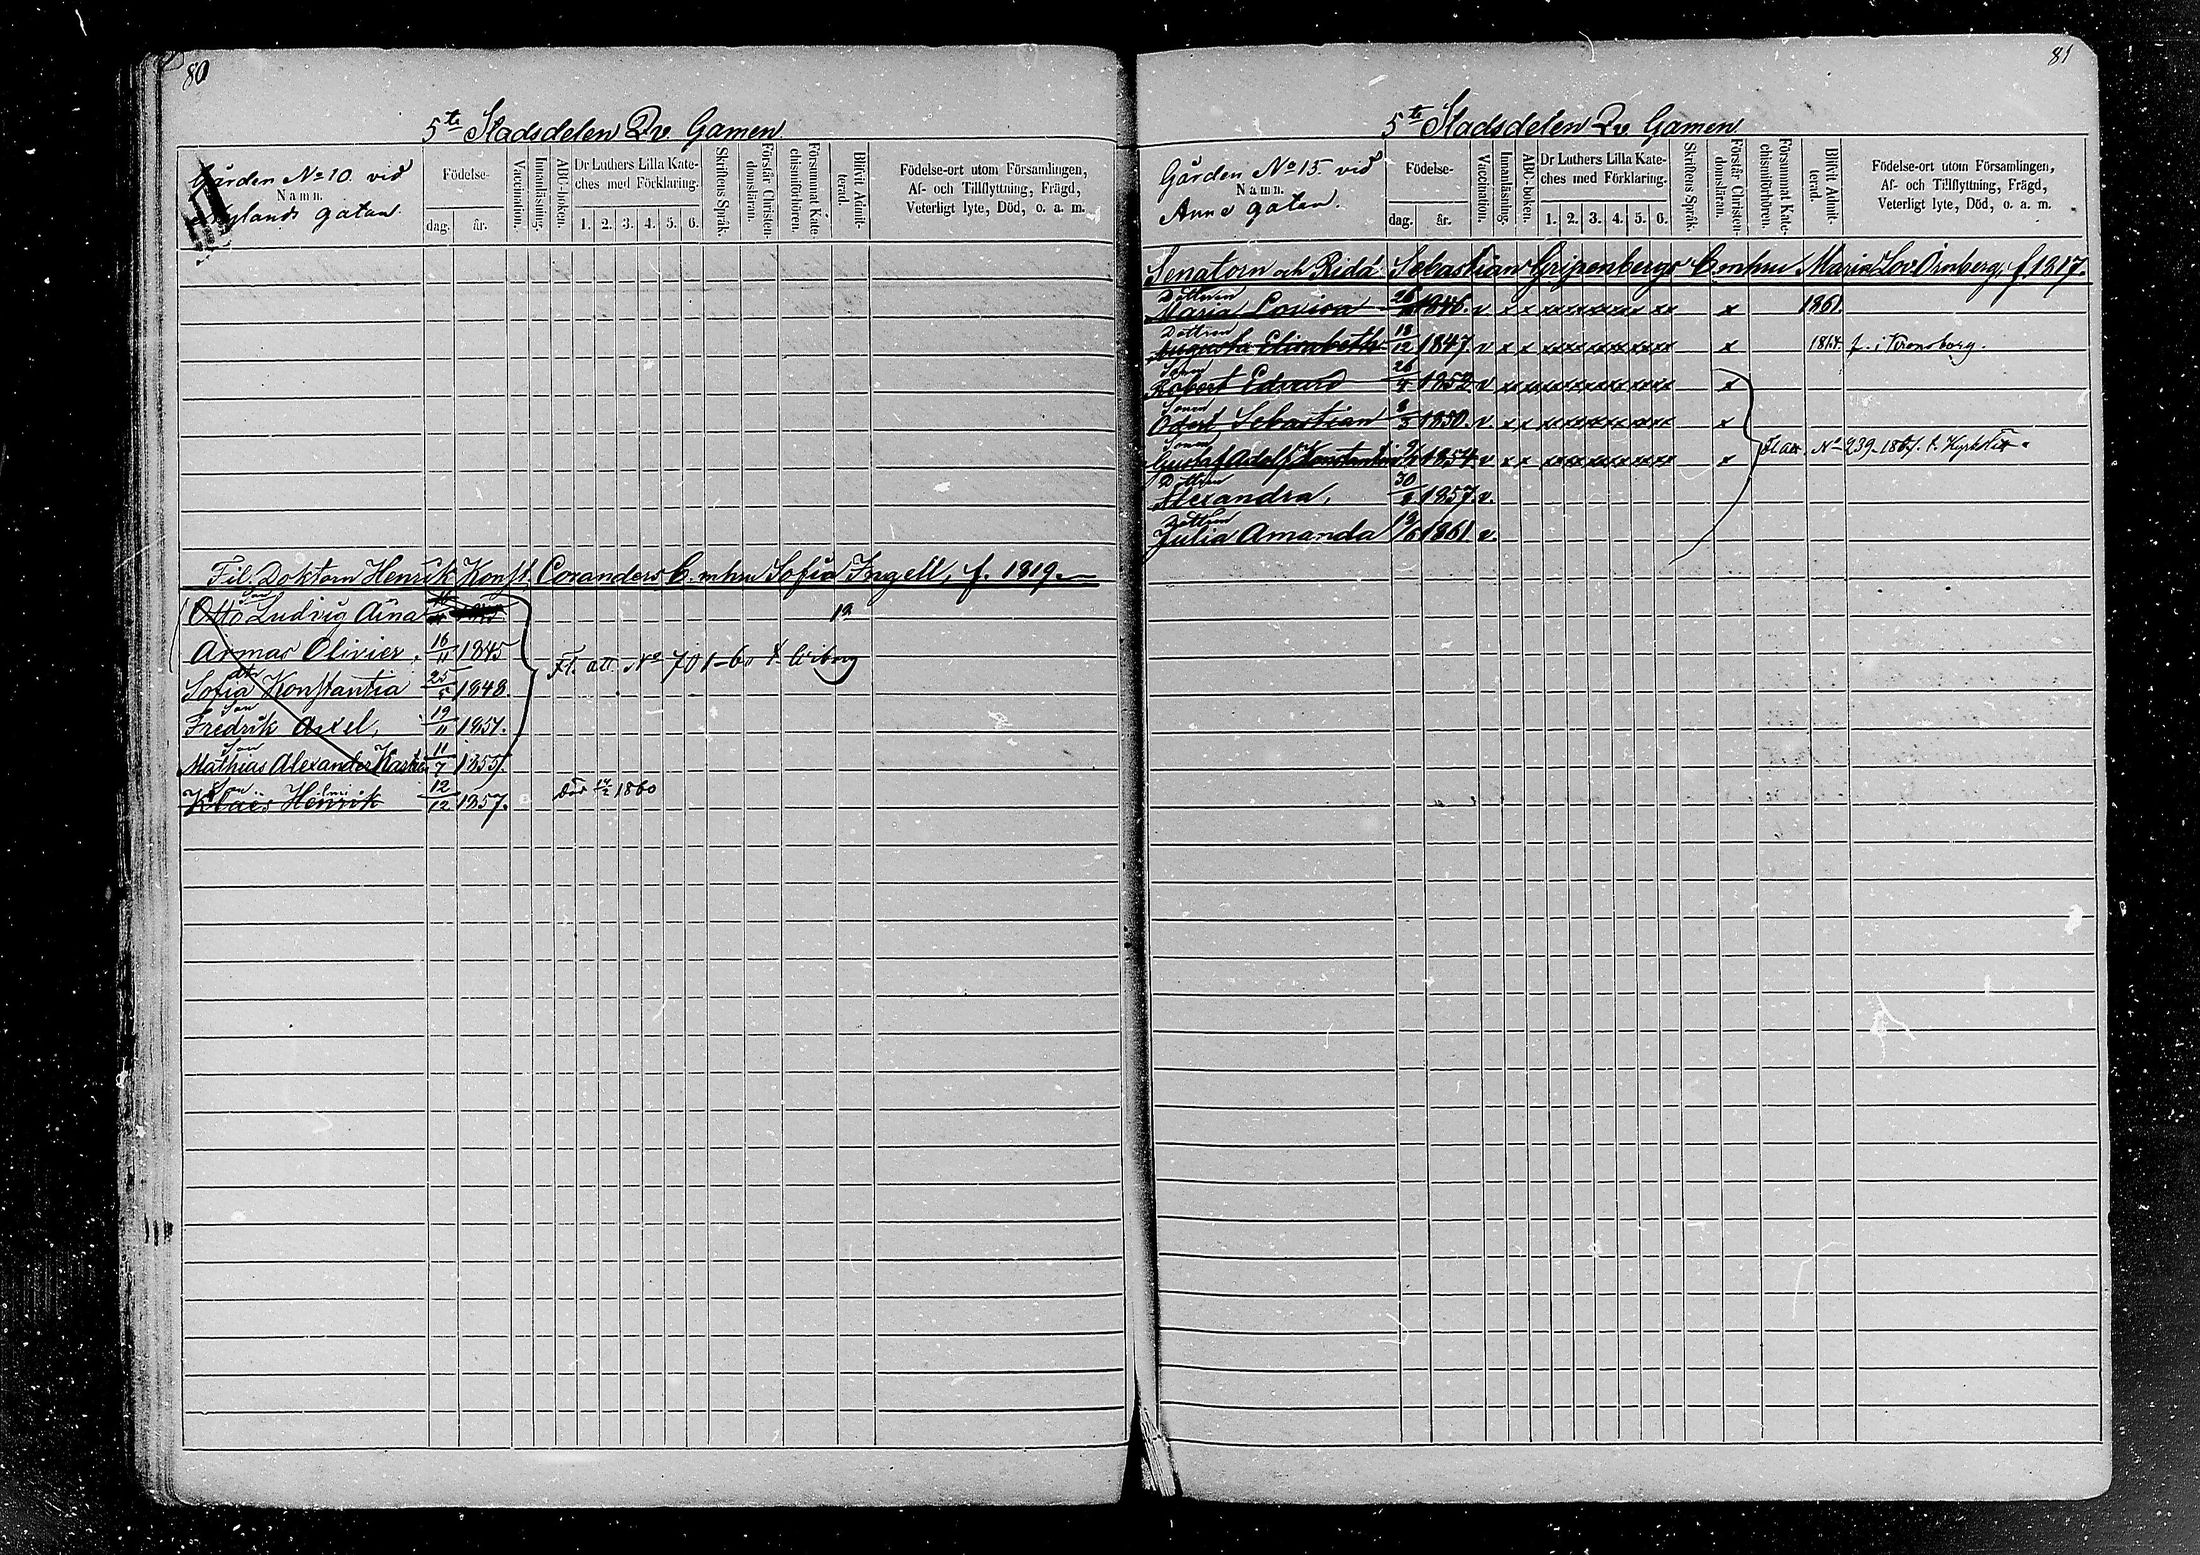 80
5te Stadsdelen Qv. Gamen
Gården No 10. vid
Namn.
Nylands gatan.
Födelse-
dag.
år.
Vaccination.
Innanläsning.
ABC-boken.
Dr Luthers Lilla Kate-
ches med Förklaring.
1. 2. 3. 4. 5. 6.
Skriftens Språk.
Förstår Christen-
domsläran.
Försummat Kate-
chismiförhören.
Blifvit Admit-
terad.
Födelse-ort utom Församlingen,
Af- och Tillflyttning, Frägd,
Veterligt lyte, Död, o. a. m.
Fil. Doktorn Henrik Konst. Coranders C. m hu Sofia Ingell, f. 1819.
Son
Otto Ludvig Aina
Armas Olivier, 16/11 1845
dtr
Sofia Konstantia 25/5 1848.
Son
Fredrik Axel, 19/11 1851.
Son
Mathias Alexander 11/7 1855.
Son
Klaes Henrik 12/12 1857. död 1860
Fl. att. No 701-60 t. Wiborg
81
5te Stadsdelen Qv. Gamen
Gården No 15. vid
Namn.
Anne gatan.
Födelse-
dag.
år.
Vaccination.
Innanläsning.
ABC-boken.
Dr Luthers Lilla Kate-
ches med Förklaring.
1. 2. 3. 4. 5. 6.
Skriftens Språk.
Förstår Christen-
domsläran.
Försummat Kate-
chismiförhören.
Blifvit Admit-
terad.
Födelse-ort utom Församlingen,
Af- och Tillflyttning, Frägd,
Veterligt lyte, Död, o. a. m.
Senatorn och Ridd Sebastian Gripenbergs C m hu Maria Lov. Örnberg, f. 1817.
Dottren
Maria Lovisa 1846. v x x x x x x x x x x 1861.
Dottren
Augusta Elisabeth 18/12 1847. v x x x x x x x x x x 1864. f. i Kronoborg.
Sonen
Robert Edvard 1852 v x x x x x x x x x x
Sonen
Odert Sebastian 8/3 1850. v x x x x x x x x x x
Sonen
Gustaf Adolf Konstantin 1854 v x x x x x x x x x x
Fl. att No 239-1864. t.
Dottren
Alexandra, 1857. v.
Dottren
Julia Amanda 1861 v.